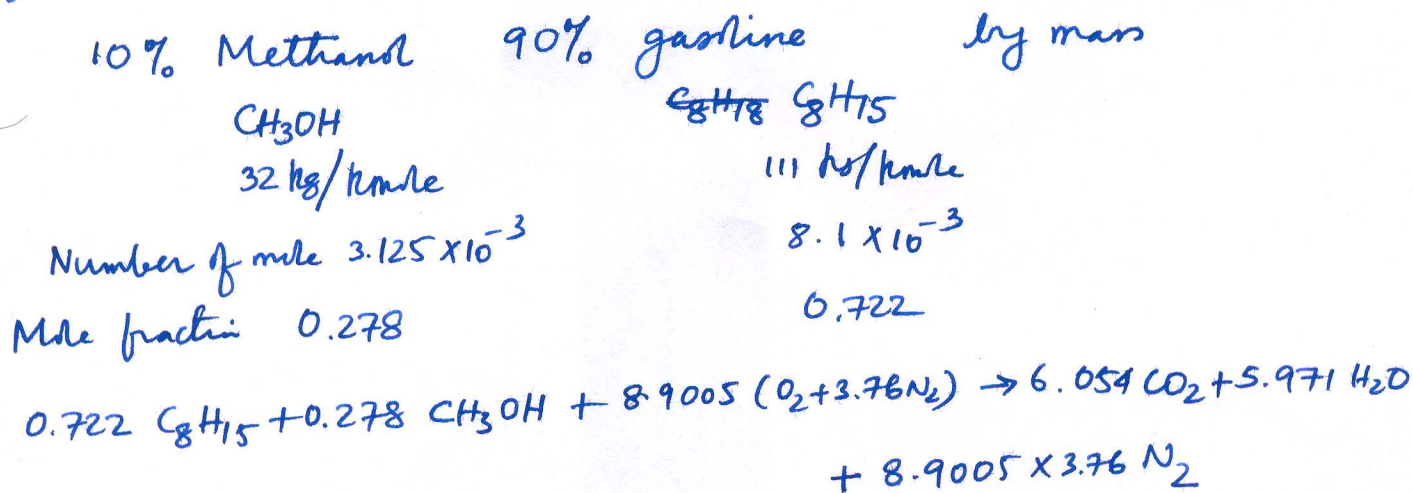 10% Methanol 90% gasoline by mass
C8H18 C8H15
CH3OH
32 kg/kmole 111 kg/kmole
Number of mole 3.125 X10^-3 8.1 X10^-3
Mole fraction 0.278 0.722
0.722 C8H15 + 0.278 CH3OH + 8.9005 (O2+3.76N2) → 6.054 CO2 + 5.971 H2O
+ 8.9005 X 3.76 N2